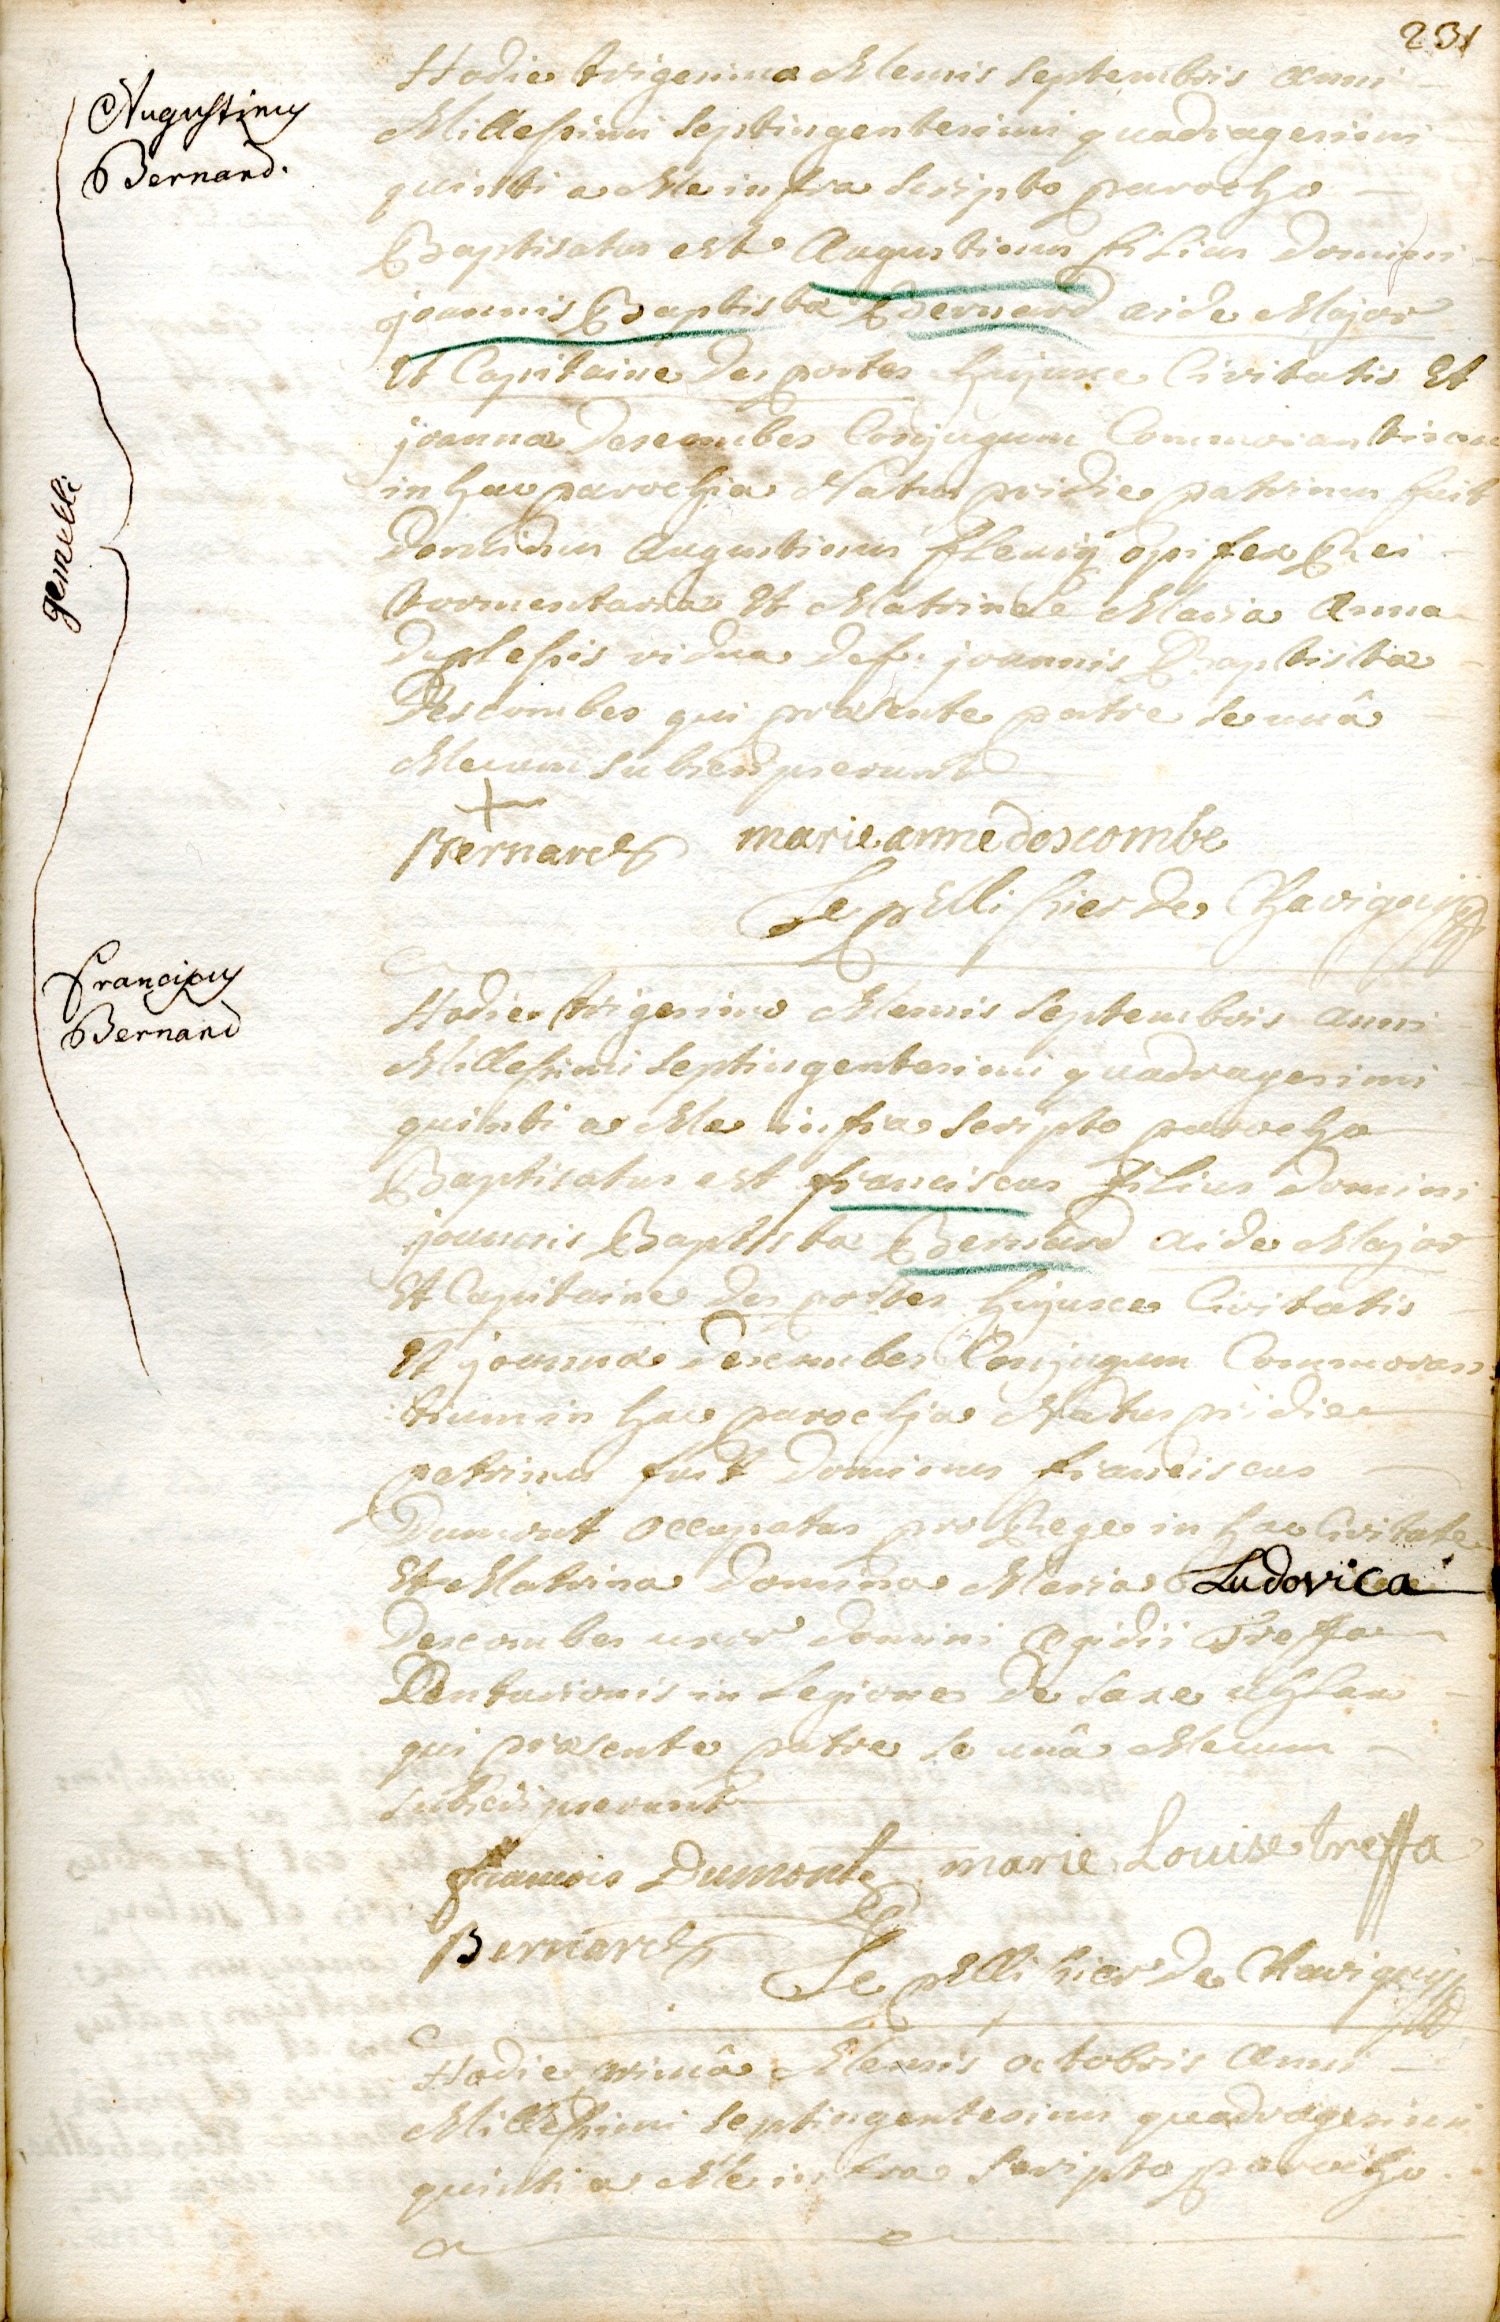 231
Augustinus
Bernard.
gemelli
Hodie trigesima Mensis Septembris anni
Millesimi Septingentesimi quadragesimi
quinti a Me infra Scripto parocho
Baptisatus est Augustinus filius Domini
joannis Baptistæ Bernard aide Major
Et Capitaine des portes hujusce Civitatis Et
joannæ Descombes Conjugum Commorantium
in hac parochia Natus pridie patrinus fuit
Dominus Augustinus fleurÿ opifex Rei
tormentariæ Et Matrina Maria Anna
Duplessis vidua def. joannis Baptistæ
Descombes qui præsente patre se unâ
Mecum subscripserunt
Bernard marie anne descombe
Le pelli sier de Chavignij
Franciscus
Bernard
Hodie trigesima Mensis Septembris anni
Millesimi Septingentesimi quadragesimi
quinti a Me infra Scripto parocho
Baptisatus est franciscus filius Domini
joannis Baptistæ Bernard aide Major
Et Capitaine des portes hujusce Civitatis
Et joannæ Descombes Conjugum Commoran
tium in hac parochia Natus pridie
patrinus fuit Dominus franciscus
Dumont occupatus pro Rege in hac Civitate
Et Matrina Domina Maria Ludovica
Descombes uxor domini Ægidii Treffa
Centurionis in Legione de Saxe uhlan
qui præsente patre se unâ Mecum
subscripserunt
francois Dumont marie Louise treffa
Bernard
Le pelli sier de Chavignij
Hodie primâ Mensis octobris Anni
Millesimi Septingentesimi quadragesimi
quinti a Me infra Scripto parocho